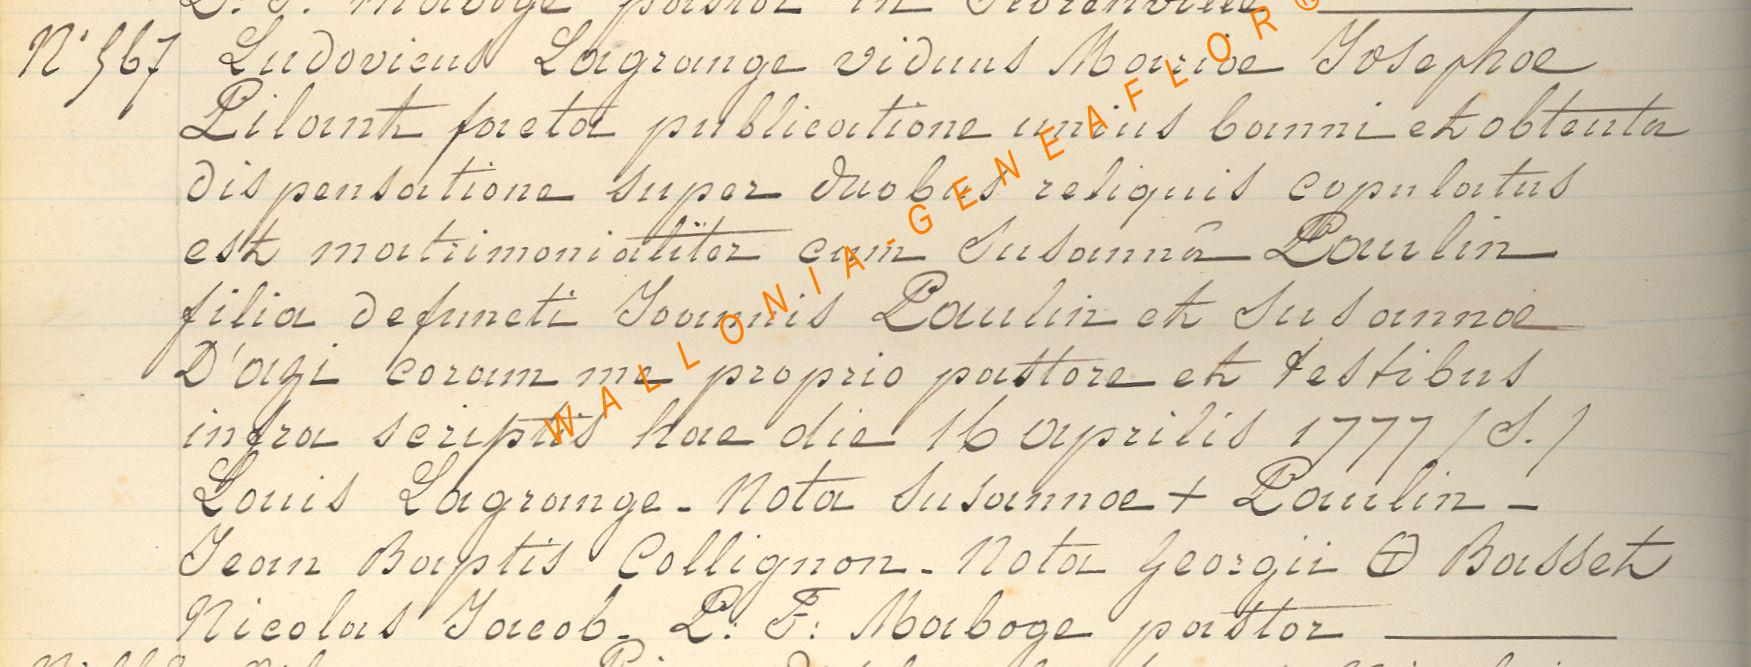 L. F. Maboge pastor in Florenville
N° 567 Ludovicus Lagrange viduus Mariae Josephae
Pilant facta publicatione unius banni et obtenta
dispensatione super duobus reliquis copulatus
est matrimonialiter cum Susannâ Paulin
filia defuncti Joannis Paulin et Susannae
D'azi coram me proprio pastore et testibus
infra scriptis hac die 16 aprilis 1777 /S./
Louis Lagrange - Nota Susannae + Paulin -
Jean Baptis Collignon - Nota Georgii ⊕ Basset
Nicolas Jacob. L: F: Maboge pastor
WALLONIA-GENEAFLOR®